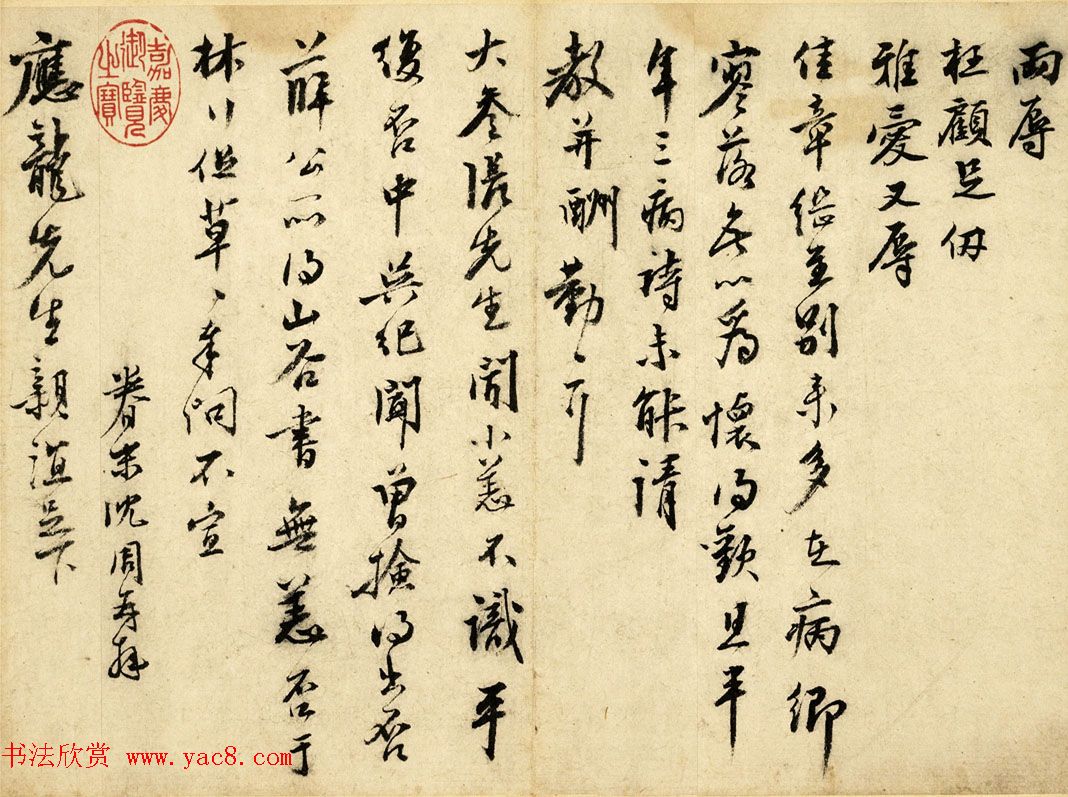 兩辱
枉顧足仞
雅愛又辱
佳章継至別來多在病鄉
寥落無以為懷得歎且半
年三病詩未能請
教并酬勤〻
大参張先生聞小恙不識平
復否中吳紀聞曾撿得出否
薛公所得山谷書無恙否于
但草〻奉問不宣
眷末沈周再拜
應龍先生親誼足下
嘉慶御覽之寶
书法欣赏 www.yac8.com